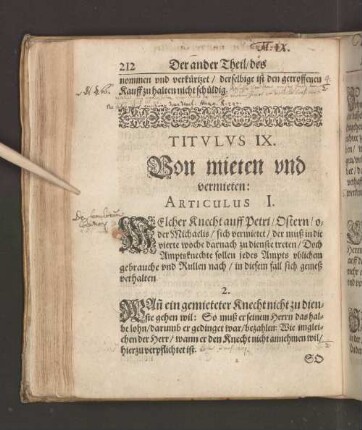 Tit. IX.
212 Der ander Theil/des
nommen vnd verkürtzet / derselbige ist den getroffenen
Kauff zu halten nicht schüldig.
TITVLVS IX.
Von mieten vnd
vermieten:
ARTICULUS I.
WElcher Knecht auff Petri/Ostern/o-
der Michaelis/sich vermietet/der muß in die
vierte woche darnach zu dienste treten/Doch
Amptsknechte sollen jedes Ampts vblichem
gebrauche vnd Rullen nach/in diesem fall sich gemeß
verhalten
2.
WAñ ein gemieteter Knecht nicht zu dien-
ste gehen wil: So muß er seinem Herrn das hal-
be lohn/darumb er gedinget war/bezahlen: Wie imglei-
chen der Herr/wann er den Knecht nicht annehmen wil/
hierzu verpflichtet ist.
SO